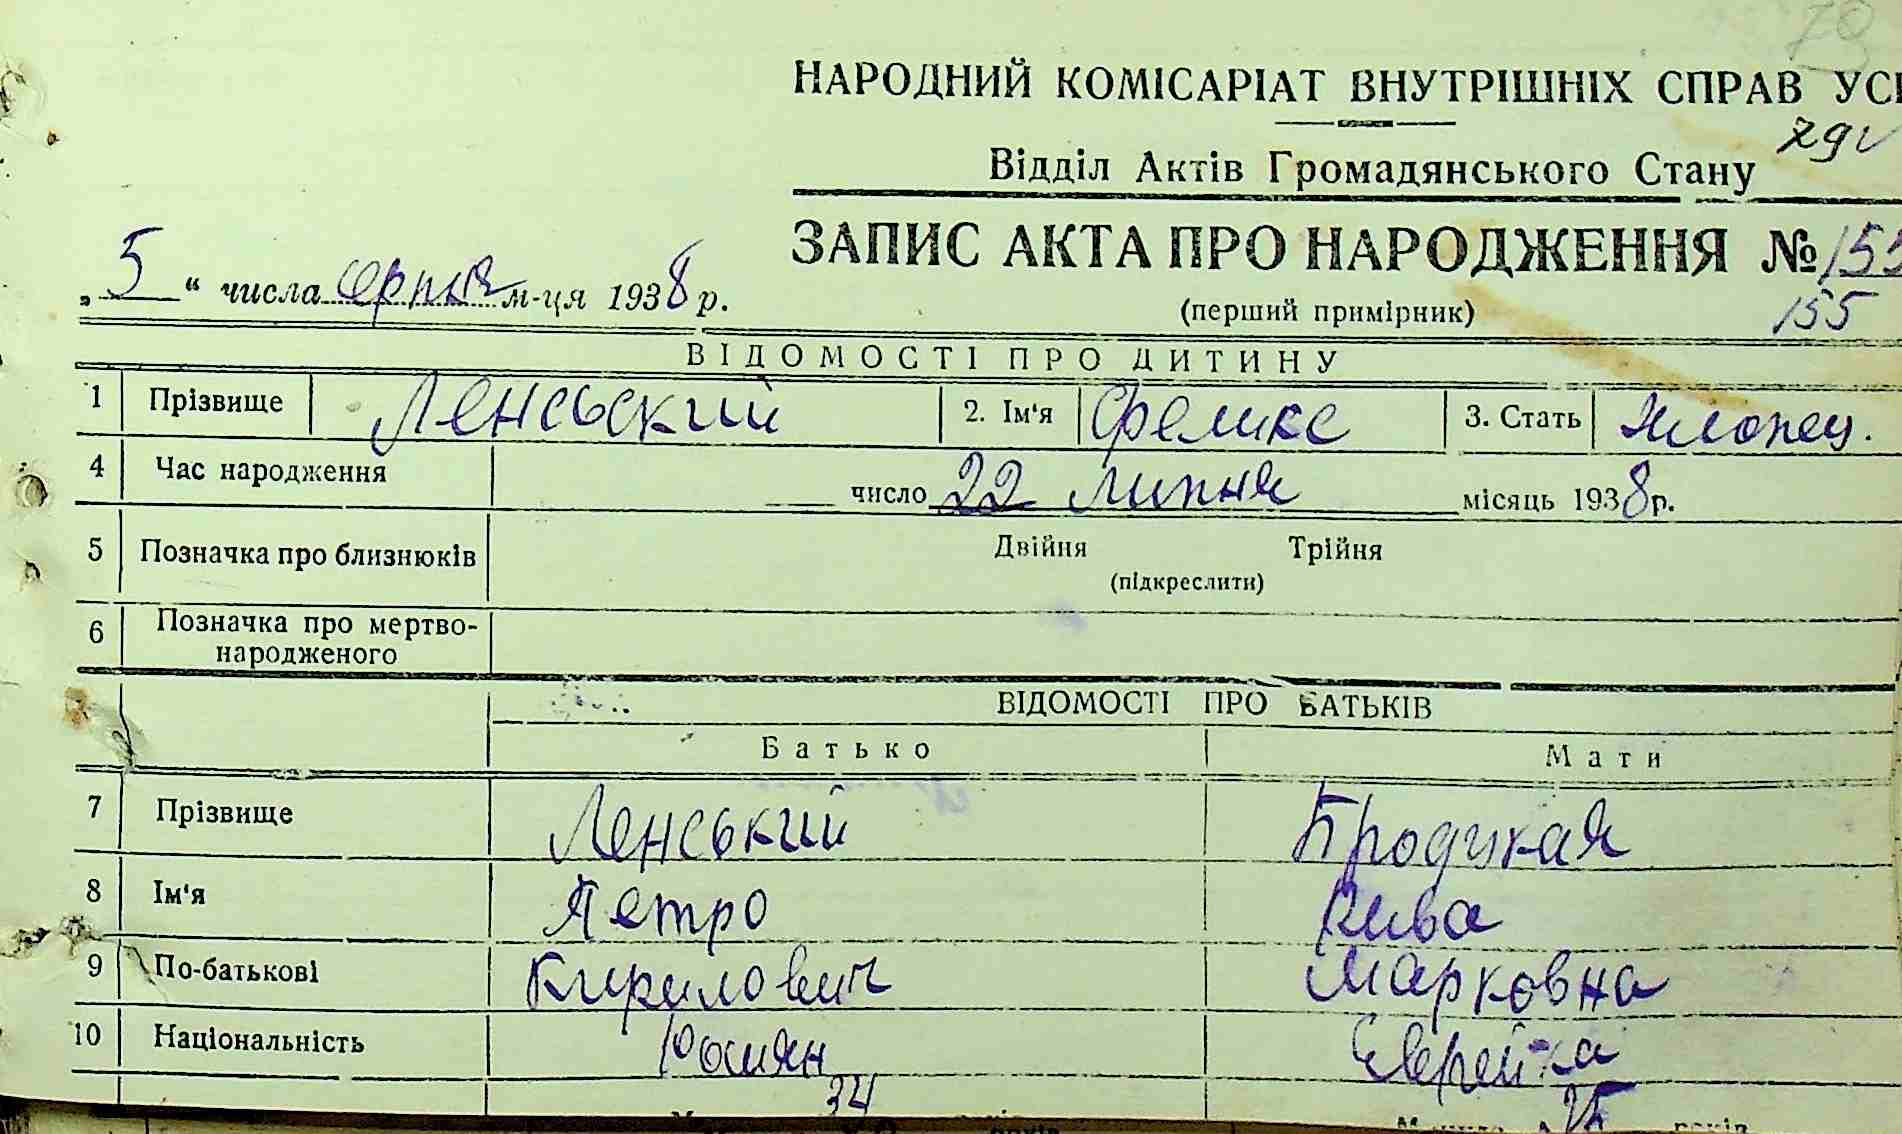 70
НАРОДНИЙ КОМІСАРІАТ ВНУТРІШНІХ СПРАВ УС
Відділ Актів Громадянського Стану
ЗАПИС АКТА ПРО НАРОДЖЕННЯ № 155
„5“ числа серпня м-ця 1938 р.
(перший примірник) 155
ВІДОМОСТІ ПРО ДИТИНУ
1 Прізвище Ленський 2. Ім'я Феликс 3. Стать хлопец.
4 Час народження число 22 липня місяць 1938 р.
5 Позначка про близнюків Двійня Трійня
(підкреслити)
6 Позначка про мертво-
народженого
ВІДОМОСТІ ПРО БАТЬКІВ
Батько Мати
7 Прізвище Ленський Бродская
8 Ім'я Петро Рива
9 По-батькові Кирилович Марковна
10 Національність Еврейка
34 25